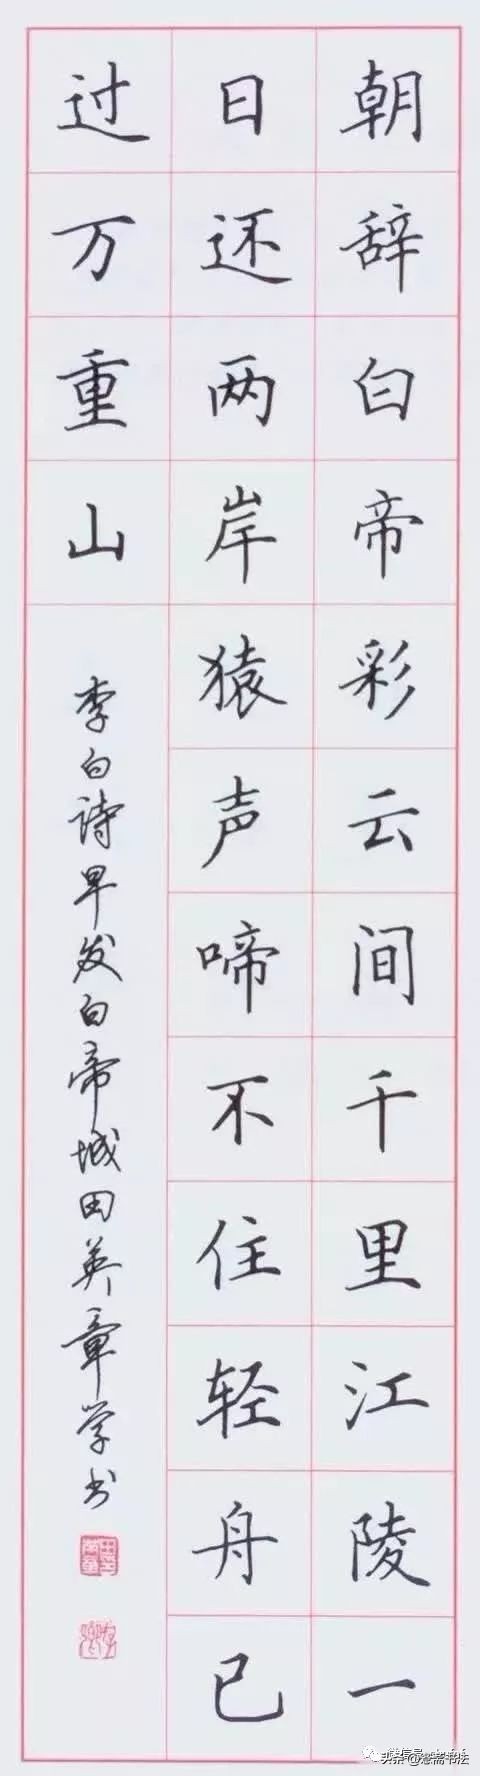 朝辞白帝彩云间千里江陵一
日还两岸猿声啼不住轻舟已
过万重山
李白诗早发白帝城田英章学书
头条@憨斋书法